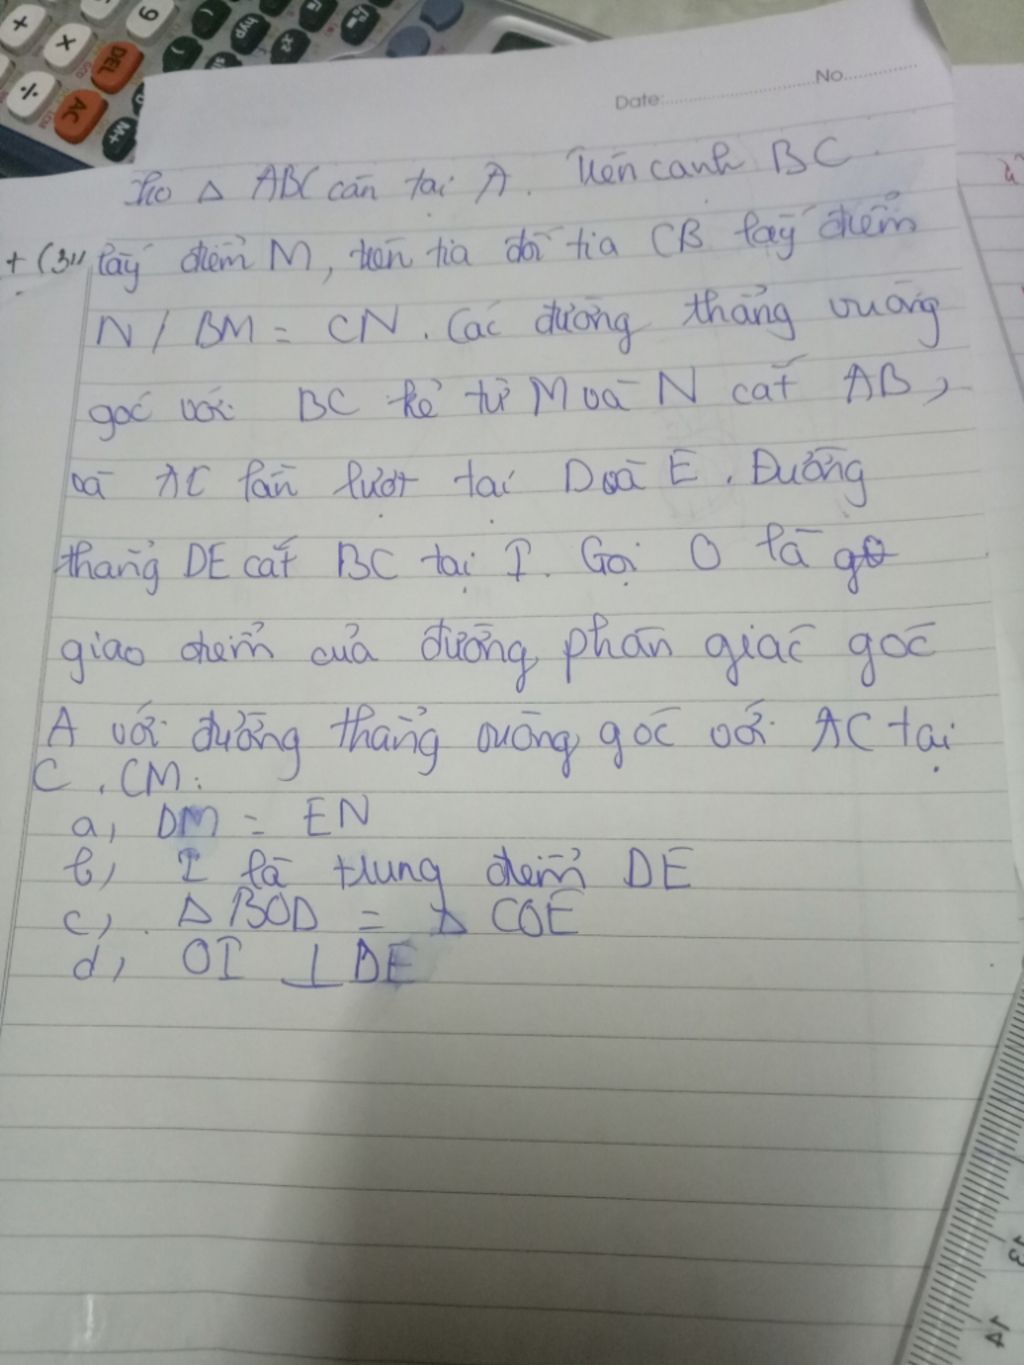 9
+
×
DEL
÷
AC
M+
hyp
(
)
x2
Date:..............................No..............
Cho Δ ABC cân tại A. Trên cạnh BC
+ (3) lấy điểm M, trên tia đối tia CB lấy điểm
N / BM = CN. Các đường thẳng vuông
góc với BC kẻ từ M và N cắt AB,
và AC lần lượt tại D và E. Đường
thẳng DE cắt BC tại I. Gọi O là
giao điểm của đường phân giác góc
A với đường thẳng vuông góc với AC tại
C. CM:
a, DM = EN
b, I là trung điểm DE
c, Δ BOD = Δ COE
d, OI ⊥ DE
13
14